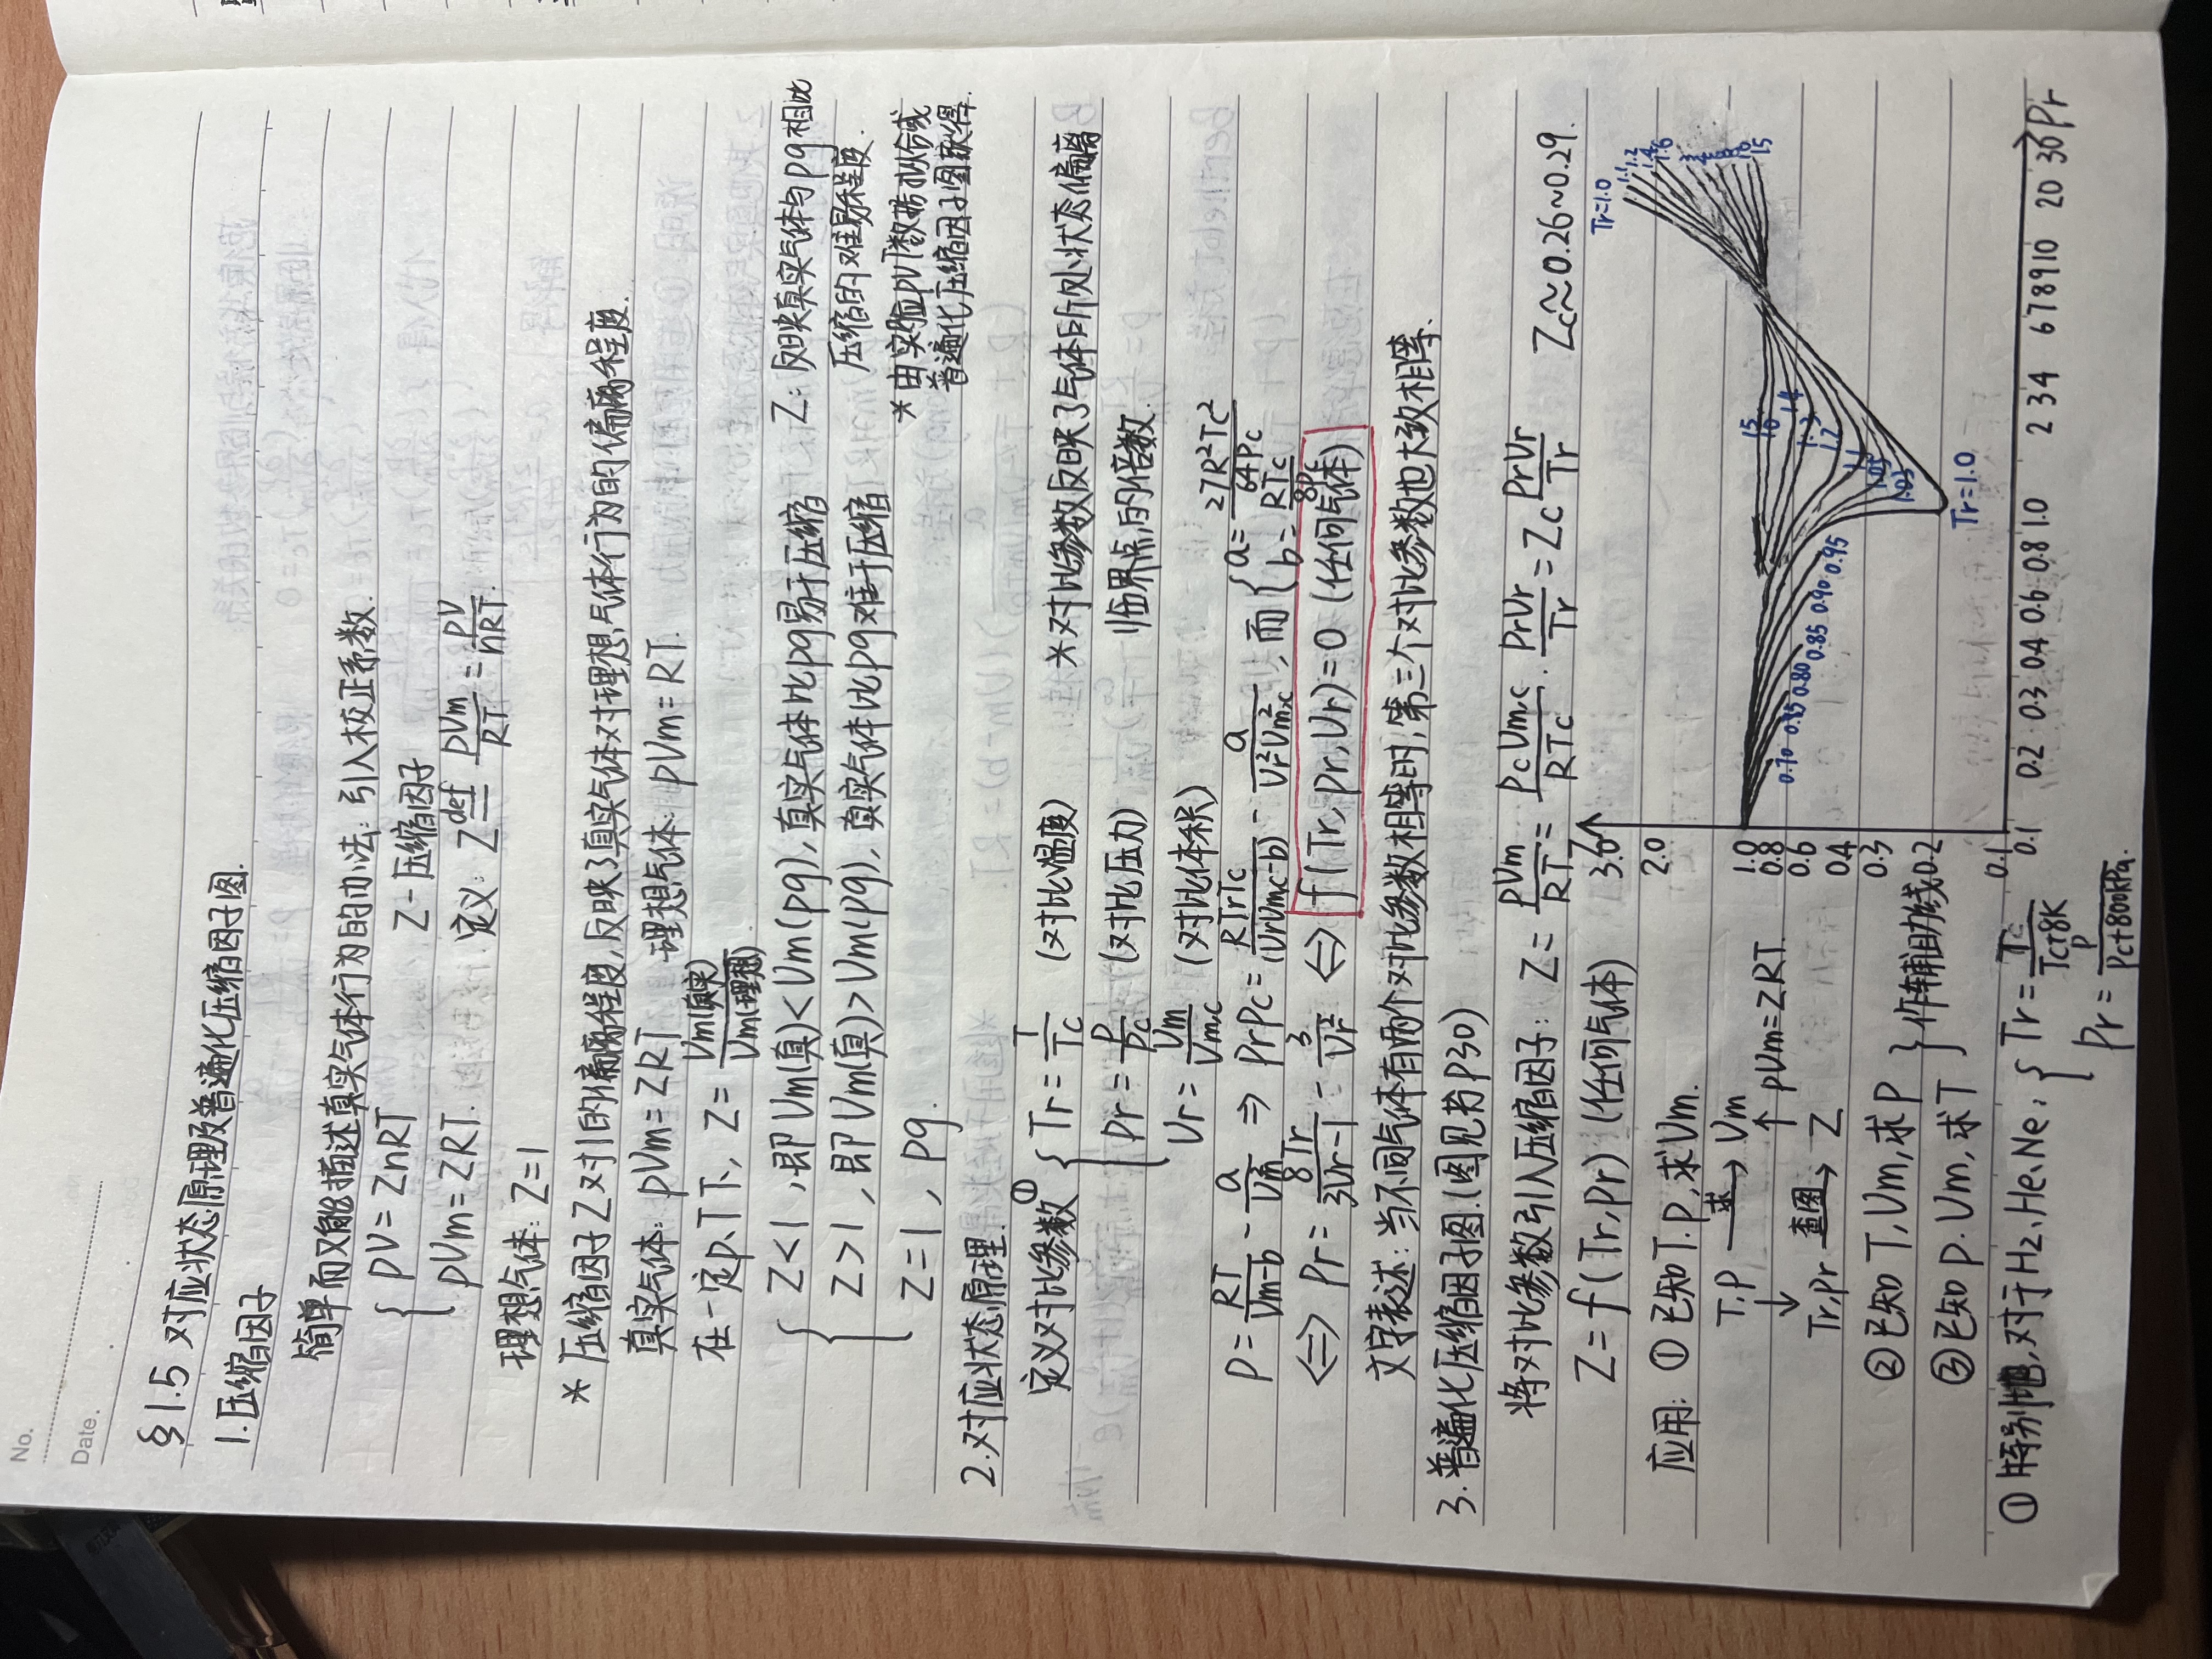 No.
Date.
§1.5 对应状态原理及普遍化压缩因子图.
1.压缩因子
简单而又能描述真实气体行为的办法:引入校正系数.
{ pV=ZnRT
Z-压缩因子
pVm=ZRT.
定义: Z def= pVm/RT = pV/nRT.
理想气体: Z=1
* 压缩因子Z对1的偏离程度,反映了真实气体对理想气体行为的偏离程度.
真实气体: pVm=ZRT 理想气体: pVm=RT.
在一定p、T下, Z= Vm(真实)/Vm(理想).
{ Z<1,即Vm(真)<Vm(pg),真实气体比pg易于压缩
Z>1,即Vm(真)>Vm(pg),真实气体比pg难于压缩
Z=1, pg.
Z: 反映真实气体与pg相比
压缩的难易程度.
* 由实验pVT数据拟合或
普遍化压缩因子图获得.
2.对应状态原理.
定义对比参数① { Tr= T/Tc (对比温度)
pr= p/pc (对比压力)
Vr= Vm/Vm,c (对比体积)
* 对比参数反映了气体所处状态偏离
临界点的倍数.
p= RT/Vm-b - a/Vm² ⇒ prpc= RTrTc/(VrVm,c-b) - a/Vr²Vm,c², 而 { a= 27R²Tc²/64pc
b= RTc/8pc
⇔ pr= 8Tr/3Vr-1 - 3/Vr² ⇔ f(Tr,pr,Vr)=0 (任何气体)
文字表述:当不同气体有两个对比参数相等时,第三个对比参数也大致相等.
3.普遍化压缩因子图.(图见书P30)
将对比参数引入压缩因子: Z= pVm/RT = pcVm,c/RTc · prVr/Tr = Zc prVr/Tr Zc≈0.26~0.29.
Z=f(Tr,pr) (任何气体)
应用: ① 已知T.p,求Vm.
T.p 求→ Vm
↓ ↑ pVm=ZRT.
Tr,pr 查图→ Z
② 已知T,Vm,求p
③ 已知p.Vm,求T
} 作辅助线
① 特别地,对于H2、He、Ne, { Tr= Tc/Tc+8K
pr= p/pc+800kPa.
Z
3.0
2.0
1.0
0.8
0.6
0.4
0.3
0.2
0.1
0.1 0.2 0.3 0.4 0.6 0.8 1.0 2 3 4 6 7 8 9 10 20 30 Pr
0.70 0.80 0.85 0.90 0.95
15
10
1.4
1.3
1.2
1.1
1.05
1.03
Tr=1.0
Tr=1.0
1.1
1.2
1.4
1.6
15